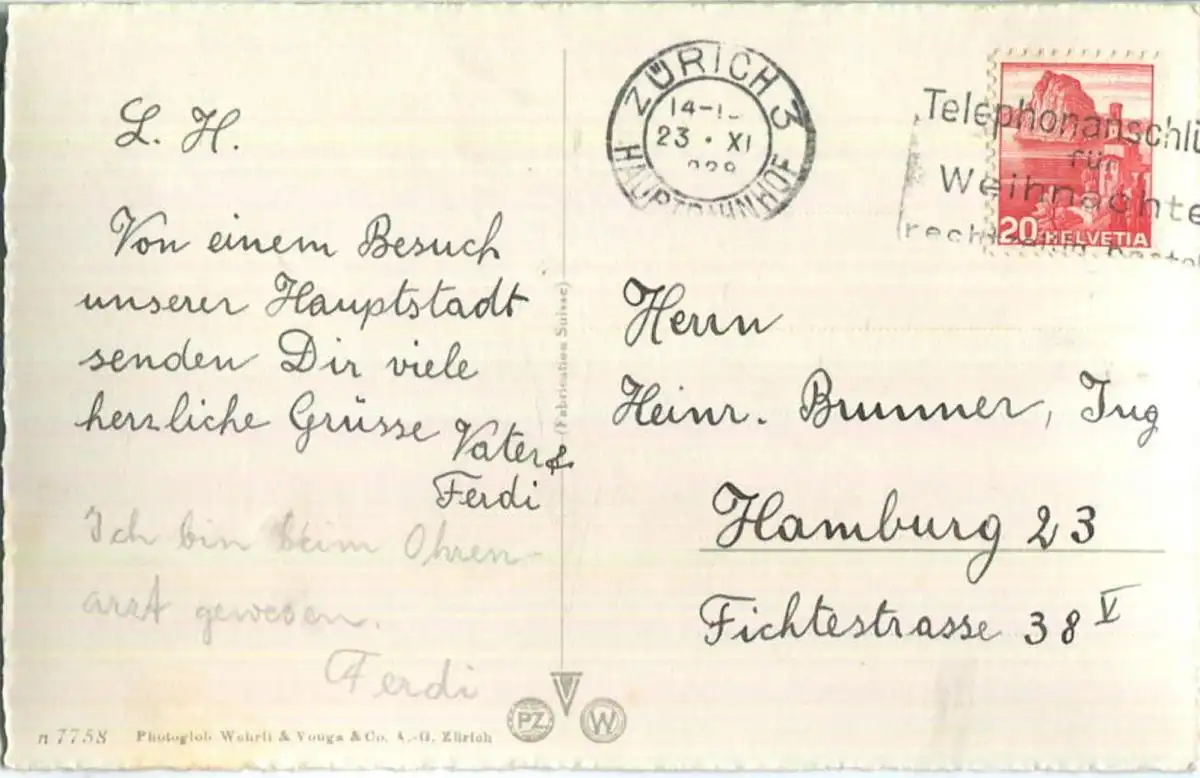 L. H.
Von einem Besuch
unserer Hauptstadt
senden Dir viele
herzliche Grüsse Vater &
Ferdi
Ich bin beim Ohren-
arzt gewesen.
Ferdi
n 7758 Photoglob Wehrli & Vouga & Co. A.-G. Zürich
(Fabrication Suisse)
PZ W
ZÜRICH 3
14-
23 · XI
HAUPTBAHNHOF
Telephonanschlü
für
Weihnachte
20 HELVETIA
Herrn
Heinr. Brunner, Ing
Hamburg 23
Fichtestrasse 38 V